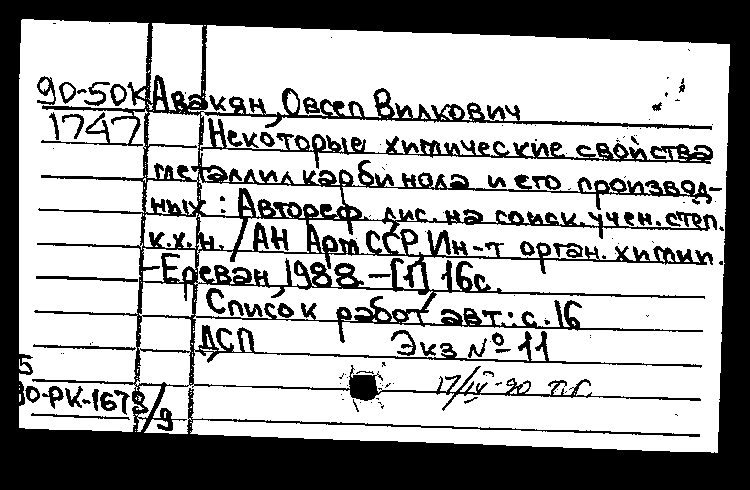 90-50К Авакян, Овсеп Вилкович
1747 Некоторые химические свойства
металлилкарбинола и его производ-
ных : Автореф. дис. на соиск. учен. степ.
к.х.н. / АН АрмССР, Ин-т орган. химии.
– Ереван, 1988. – [1], 16с.
Список работ авт.: с. 16
ДСП Экз № 11
17/IV-90
90-РК-1678/9